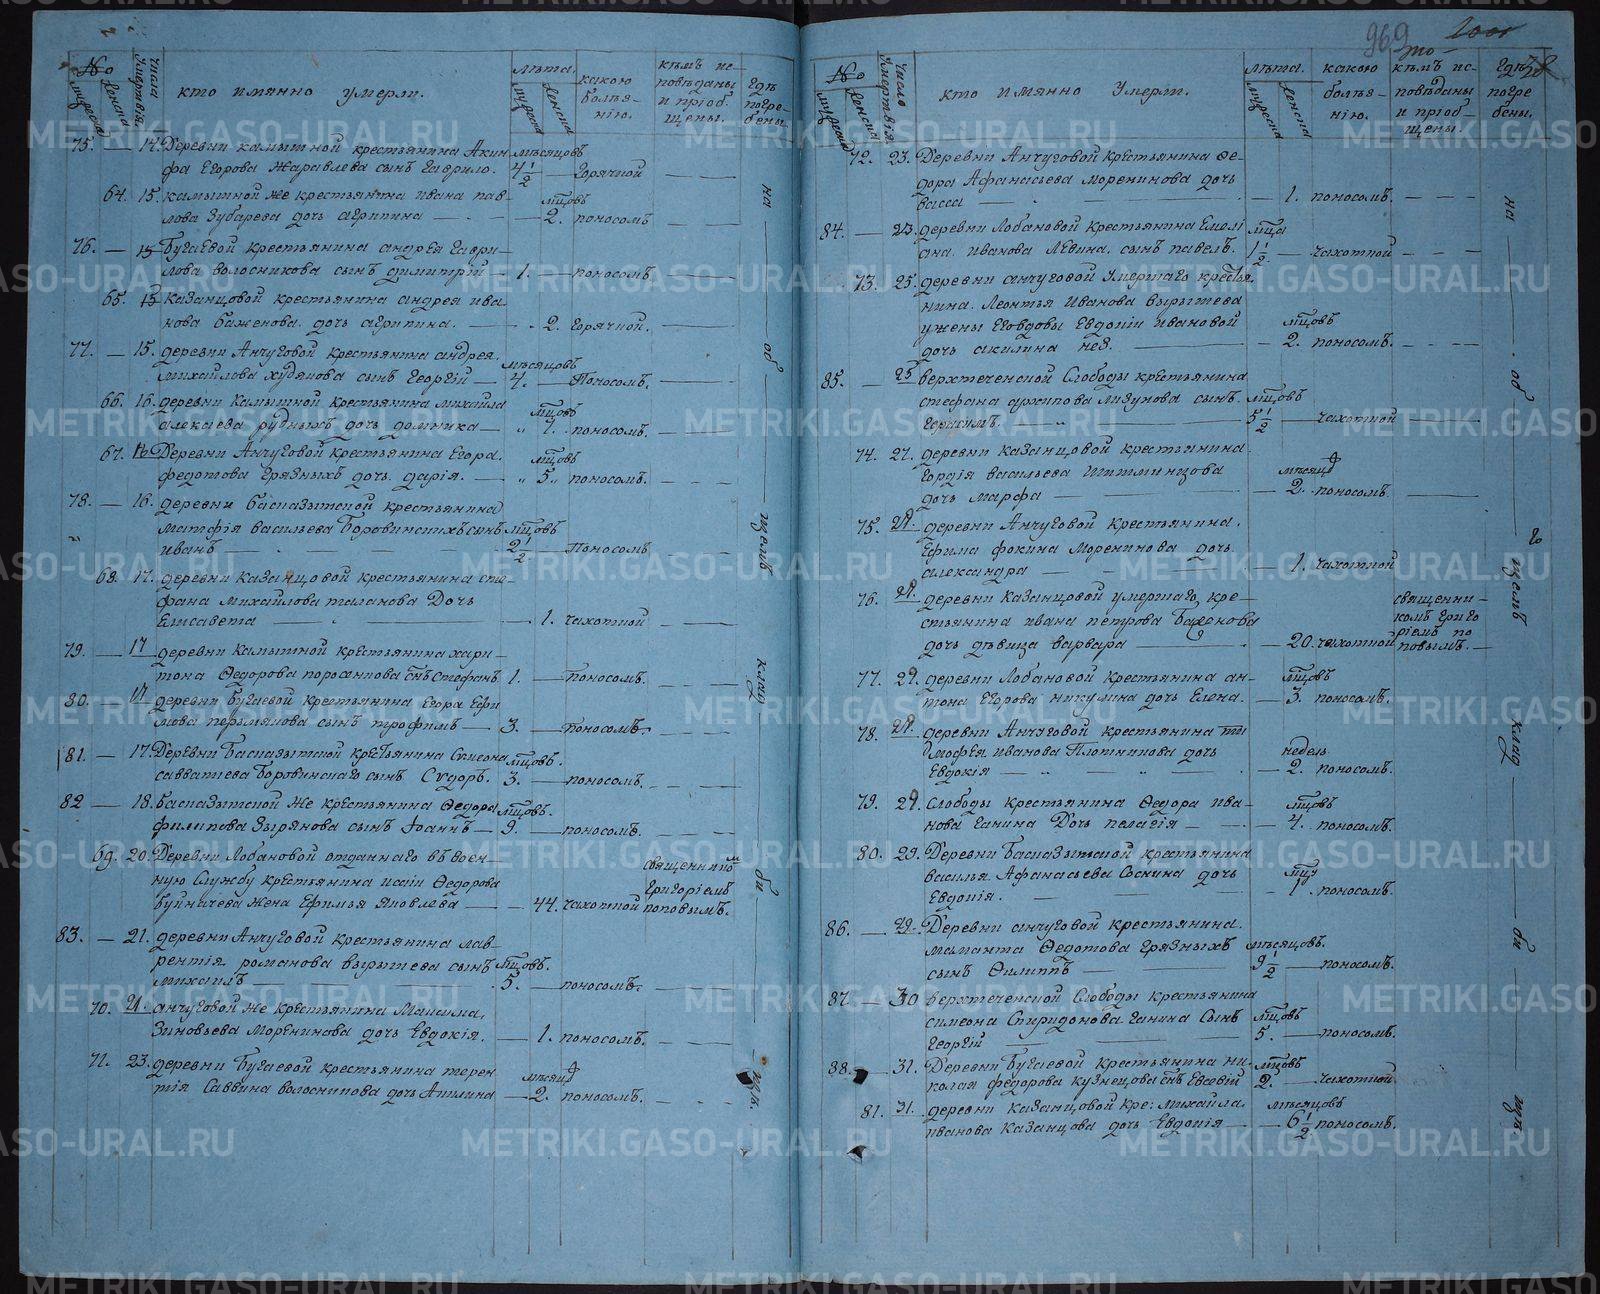 №
мужеска
женска
Числа умертвія.
кто имянно умерли.
лѣта.
мужеска
женска
какою болѣзнію.
кѣмъ исповѣданы и пріобщены.
гдѣ погребены.
75. — 14. Деревни камышной крестьянина Акин- мѣсяцовъ
фа Егорова Жаравлева сынъ Гаврило. 4 1/2 — Горячкой
64. 15. камышной же крестьянина ивана пав- мѣсцовъ
лова Зубарева дочь агрипина — 2. поносомъ
76. — 15 Бугаевой крестьянина андрея гаври-
лова волосникова сынъ димитрій 1. — поносомъ.
65. 15 Казанцовой крестьянина андрея ива-
нова баженова. дочь агрипина. — 2. горячкой.
77. — 15. деревни Анчуговой крестьянина андрея. мѣсяцовъ
михайлова худякова сынъ Георгій — 4. — Поносомъ.
66. 16. деревни Камышной крестьянина михайла мѣсцовъ
алексѣева рудныхъ дочь домника — 7. поносомъ.
67. 16. Деревни Анчуговой крестьянина Егора. мѣсцовъ
федотова Грязныхъ дочь дарія. — 5. поносомъ.
78. — 16. деревни басказыкской крестьянина
матфія васильева Боровинскихъ сынъ мѣсцовъ
иванъ — 2 1/2 — Поносомъ.
68. 17. деревни Казанцовой крестьянина сте-
фана михайлова таланова Дочь
Елисавета — 1. чахоткой
79. — 17 деревни камышной крестьянина хари-
тона Ѳедорова сынъ Стефанъ 1. — поносомъ.
80. — 17 деревни бугаевой крестьянина Егора Ефи
мова пермякова сынъ трофимъ — 3. — поносомъ.
81. — 17. Деревни басказыкской крестьянина Симеона мѣсцовъ.
савватеева боровинскаго сынъ Сидоръ. 3. — поносомъ.
82 — 18. басказыкской же крестьянина Ѳедора мѣсцовъ.
филипова Зырянова сынъ Іоаннъ — 9. — поносомъ.
69. 20. Деревни Лобановой отданнаго въ воен- священникомъ
ную Службу крестьянина исаіи Ѳедорова Григоріемъ
жена Ефимья яковлева — 44. чахоткой поповымъ.
83. — 21. деревни Анчуговой крестьянина лав-
рентія романова вырышева сынъ мѣсцовъ.
михаилъ — 5. — поносомъ.
70. 21. анчуговой же крестьянина Максима.
Зиновьева моренинова дочь Евдокія. — 1. поносомъ.
71. 23. деревни бугаевой крестьянина терен- мѣсяца
тія Саввина волосникова дочь Акилина — 2. поносомъ.
на — об — щемъ клад — би — щѣ.
969
78
№
мужеска
женска
Число умертвія
кто имянно умерли.
лѣта.
мужеска
женска
какою болѣзнію.
кѣмъ исповѣданы и пріобщены.
гдѣ погребены.
72. 23. Деревни Анчуговой крестьянина ѳе-
дора Афанасьева Моренинова дочь
васса — 1. поносомъ.
84. — 23. деревни Лобановой крестьянина Емелі мѣсца
ана. иванова Лѣвина. сынъ павелъ. 1 1/2 — чахоткой
73. 25. деревни анчуговой умершаго крестья-
нина. Леонтья иванова вырышева
у жены его вдовы Евдокіи ивановой мѣсцовъ
дочь акилина — 2. поносомъ.
85. — 25 верхтеченской Слободы крестьянина
стефана архипова лизунова сынъ. мѣсцовъ
Герасимъ. — 5 1/2 — чахоткой
74. 27. деревни Казанцовой крестьянина
Гордія васильева мѣсяца
дочь марфа — 2. поносомъ.
75. 27. деревни Анчуговой крестьянина.
Ефима фокина Моренинова дочь.
александра — 1. чахоткой
76. 27. деревни Казанцовой умершаго кре- священни-
стьянина ивана петрова Баженова комъ Григо
дочь дѣвица варвара — 20. чахоткой ріемъ поповымъ.
77. 29. деревни Лобановой крестьянина ан- мѣсцовъ
тона Егорова никулина дочь Елена. — 3. поносомъ.
78. 29. деревни Анчуговой крестьянина ти
мофея иванова Плотникова дочь недель
Евдокія — 2. поносомъ.
79. 29. Слободы крестьянина Ѳедора ива- мѣсцовъ
нова Ганина Дочь пелагія — 4. поносомъ.
80. 29. Деревни басказыкской крестьянина
василья Афанасьева Соснина дочь мѣсц
Евдокія. — 1. поносомъ.
86. — 29. Деревни анчуговой крестьянина.
маманта Ѳедотова Грязныхъ мѣсяцовъ.
сынъ Филиппъ — 9 1/2 — поносомъ.
87. — 30 верхтеченской Слободы крестьянина
симеона Спиридонова Ганина Сынъ мѣсцовъ
Георгій — 5. — поносомъ.
88. — 31. Деревни бугаевой крестьянина ни- мѣсцовъ
колая федорова кузнецова сынъ Евсевій 2. — чахоткой
81. 31. деревни казанцовой кре: михайла. мѣсяцовъ
иванова Казанцова дочь Евдокія — 6 1/2 поносомъ.
на — об — щемъ клад — би — щѣ.
METRIKI.GASO-URAL.RU